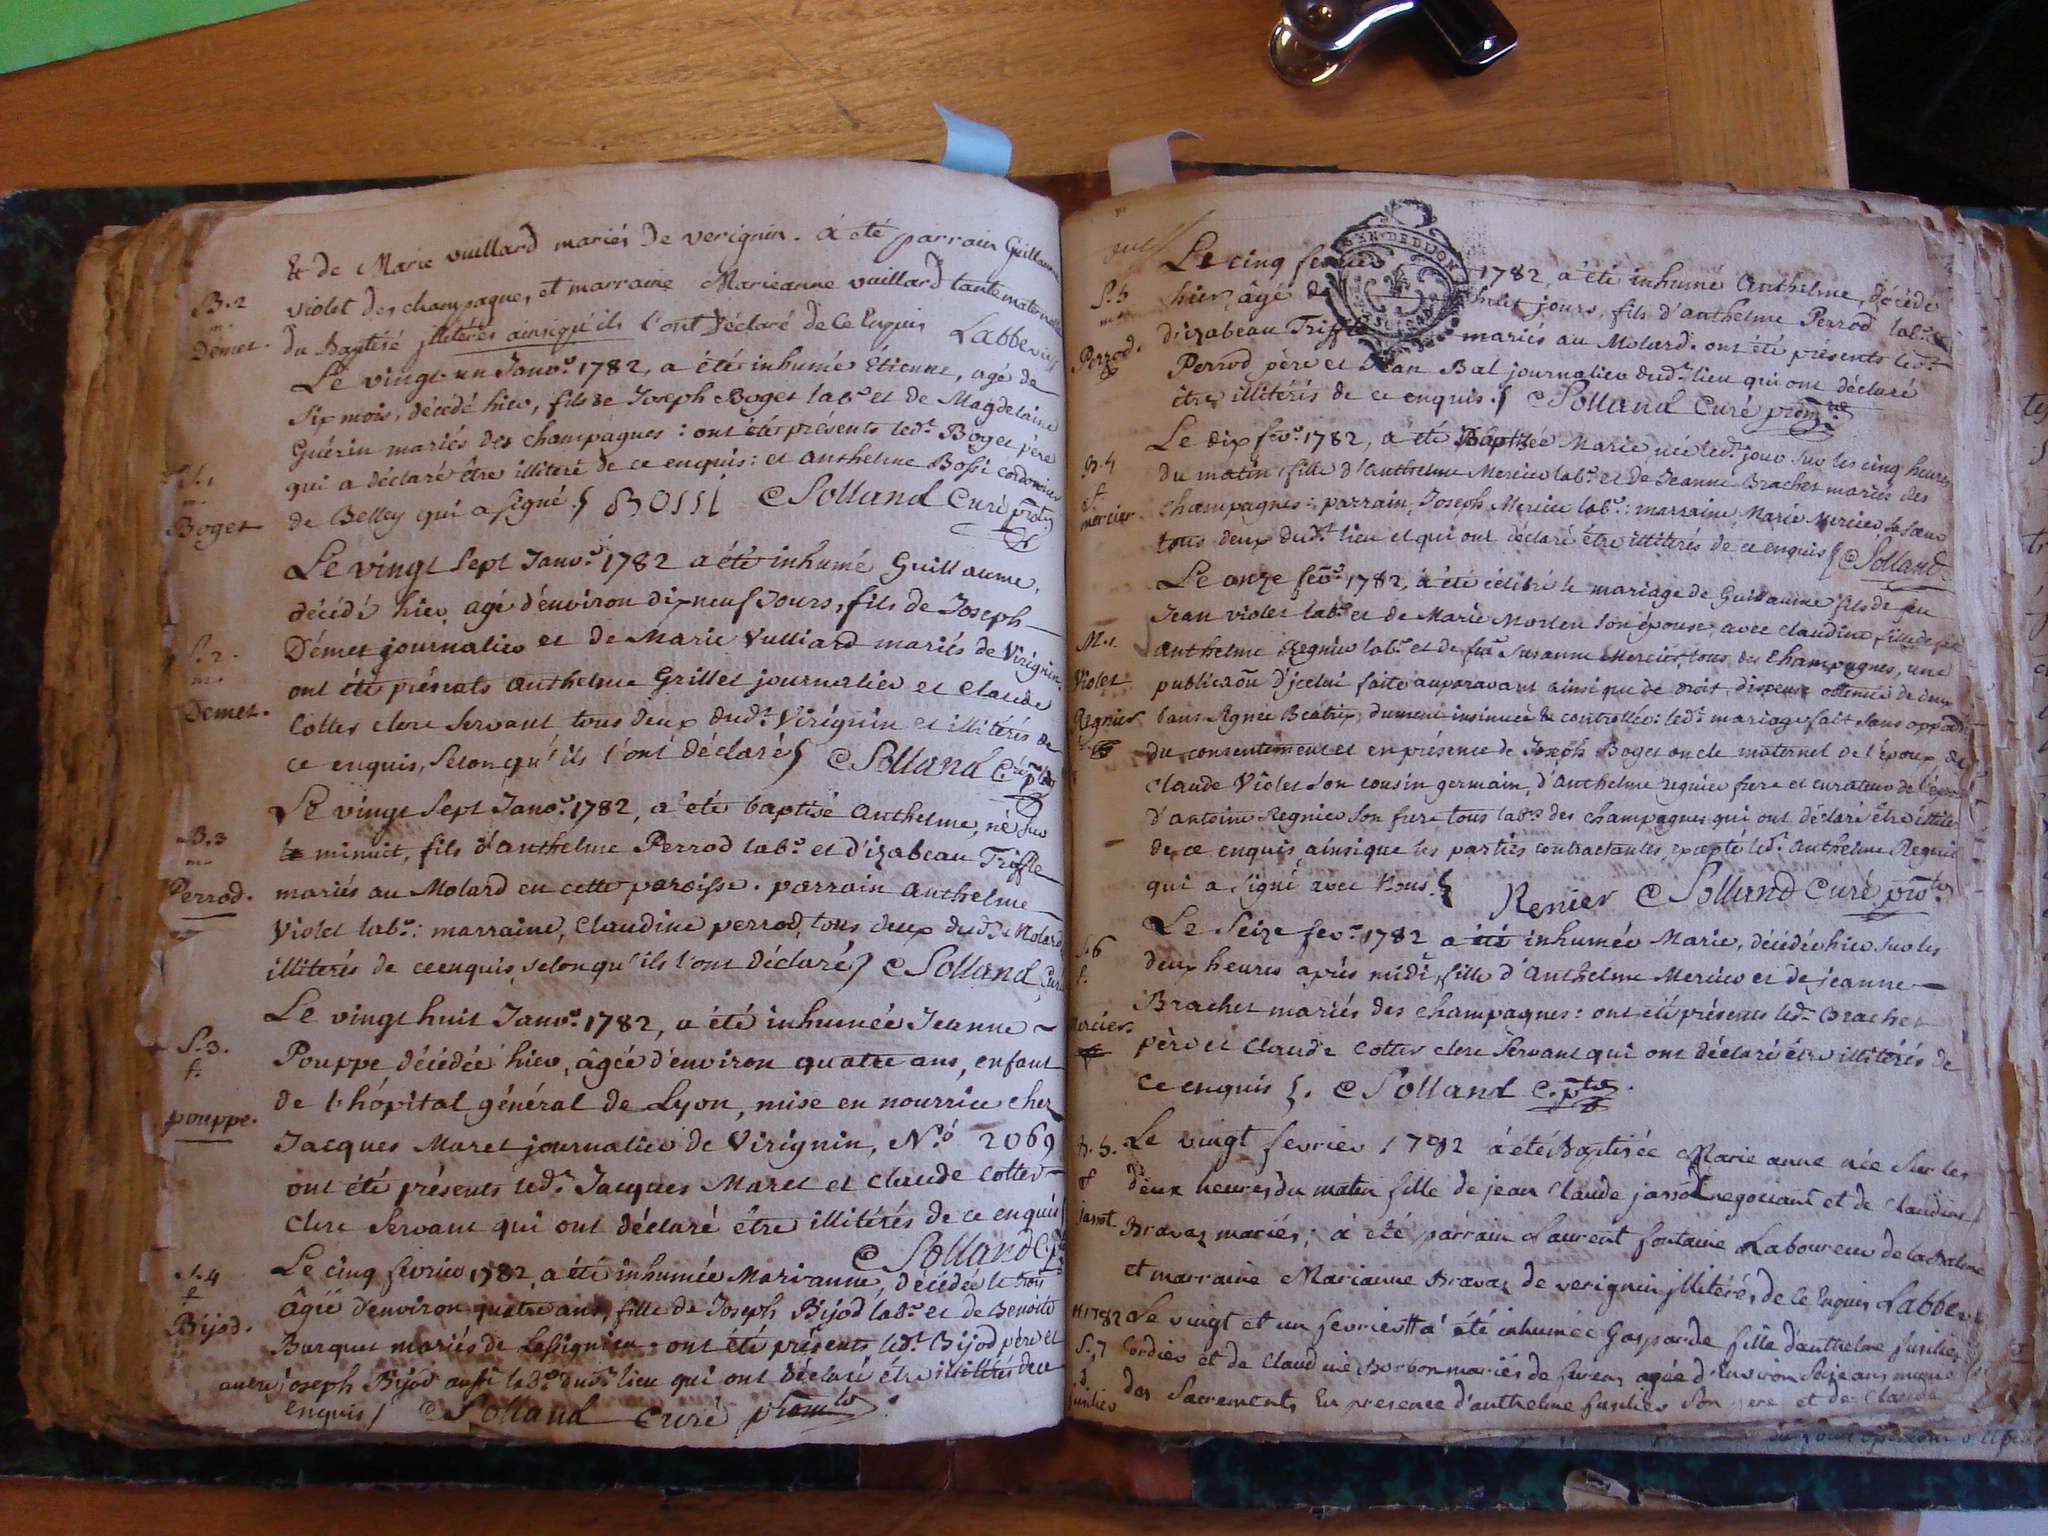 Et de Marie vuillard mariés de verignin. a été parrain Guillaume
B. 2
m.
Démet.
violet des champagnes et marraine Marieanne vuillard tante maternelle
du Baptisé jllitérés ainsiqu'ils l'ont Déclaré de Ce Enquis
Le vingt un Janvr. 1782, a été inhumé Etienne, agé de
six mois, décédé hier, fils de Joseph Boget labr. et de Magdelaine
Guérin mariés des champagnes : ont été présents ledt. Boget père
qui a déclaré être illiteré de ce enquis : et anthelme Bossi cordonnier
m.
Boget
de Belley qui a signé. BOSSI Solland Curé
Le vingt Sept Janvr. 1782 a été inhumé Guillaume,
décédé hier agé d'environ dixneuf Jours, fils de Joseph
S. 2.
m.
Démet.
Démet journalier et de Marie Vulliard mariés de Virignin.
ont été présents anthelme Grillet journalier et Claude
Cottet clerc servant tous deux dudt. Virignin et illitérés de
ce enquis, selon qu'ils l'ont déclaré Solland
Le vingt Sept Janvr. 1782, a été baptisé anthelme, né sur
B. 3
m.
Perrod.
le minuit, fils d'anthelme Perrod labr. et d'izabeau Triffle
mariés au Molard en cette paroisse. parrain anthelme
Violet labr. : marraine, Claudine perrod, tous deux dudt. Molard
illitérés de ce enquis, selon qu'ils l'ont déclaré Solland Curé
Le vingt huit Janvr. 1782, a été inhumée Jeanne
S. 3.
f.
pouppe.
Pouppe décédée hier, âgée d'environ quatre ans, enfant
de l'hôpital général de Lyon, mise en nourrice chez
Jacques Maret journalier de Virignin, No. 2069
ont été présents ledt. Jacques Maret et claude Cottet
clerc servant qui ont déclaré être illitérés de ce enquis
Solland
S. 4
Bijod.
Le cinq février 1782, a été inhumée Marianne, décédée le
Âgée d'environ quatre ans, fille de Joseph Bijod labr. et de Benoite
mariés de : ont été présents ledt. Bijod père et
autre joseph Bijod aussi dudt. lieu qui ont déclaré être illitérés de ce
enquis Solland Curé
Le cinq 1782, a été inhumé Anthelme, décédé
S. 5
Perrod.
hier, âgé de huit jours, fils d'anthelme Perrod labr.
EN. DE DIJON
d'izabeau Triffle mariés au Molard. ont été présents ledt.
Perrod père et Jean Bal journalier dudt. lieu qui ont déclaré
être illitérés de ce enquis. Solland Curé
Le dix fevr. 1782, a été Baptisée Marie née ledt. jour sur les cinq heures
B. 4
f.
mercier.
du matin, fille d'anthelme Mercier labr. et de Jeanne Brachet mariés des
champagnes : parrain, Joseph Mercier labr. : marraine, Marie Mercier sa sœur
tous deux dudt. lieu et qui ont déclaré être illitérés de ce enquis Solland
Le onze fevr. 1782, a été célébré le mariage de Guillaume fils de feu
Jean violet labr. et de Marie son épouse, avec claudine fille de feu
M. 1.
Violet
Regnier
anthelme Regnier labr. et de Susanne Mercier, tous des Champagnes, une
d'jcelui faite auparavant ainsi que de droit, dispense obtenue de deux
insinuée & controllée : ledt. mariage fait sans
du consentement et en présence de Joseph Boget oncle maternel de l'époux, de
Claude Violet son cousin germain, d'Anthelme regnier frere et curateur de
d'antoine Regnier son frere tous labrs. des champagnes qui ont déclaré être
de ce enquis, ainsique les parties contractantes, excepté ledt. Anthelme Regnier
qui a signé avec Nous. Renier Solland Curé
Le Seize fevr. 1782 a été inhumée Marie, décédée hier sur les
6
f.
deux heures après midi, fille d'Anthelme Mercier et de jeanne
Brachet mariés des champagnes : ont été présents ledt. Brachet
père et Claude Cottet clerc servant qui ont déclaré être illitérés de
ce enquis. Solland
Le vingt fevrier 1782 a été Baptisée Marie anne née sur les
B. 5.
f
deux heures du matin fille de jean Claude negociant et de Claudine
Bravaz mariés; a été parrain Laurent fontaine Laboureur de la Balme
et marraine Marianne Bravaz de verignin jllitérés de Ce Enquis
1782 Le vingt et un fevrier a été inhumée Gasparde fille danthelme fusilier
S. 7
fusilier
Cordier et de Claudine mariés de agée d'Environ Seize ans munie
des Sacrements En presence d'anthelme fusilier son pere et de Claude